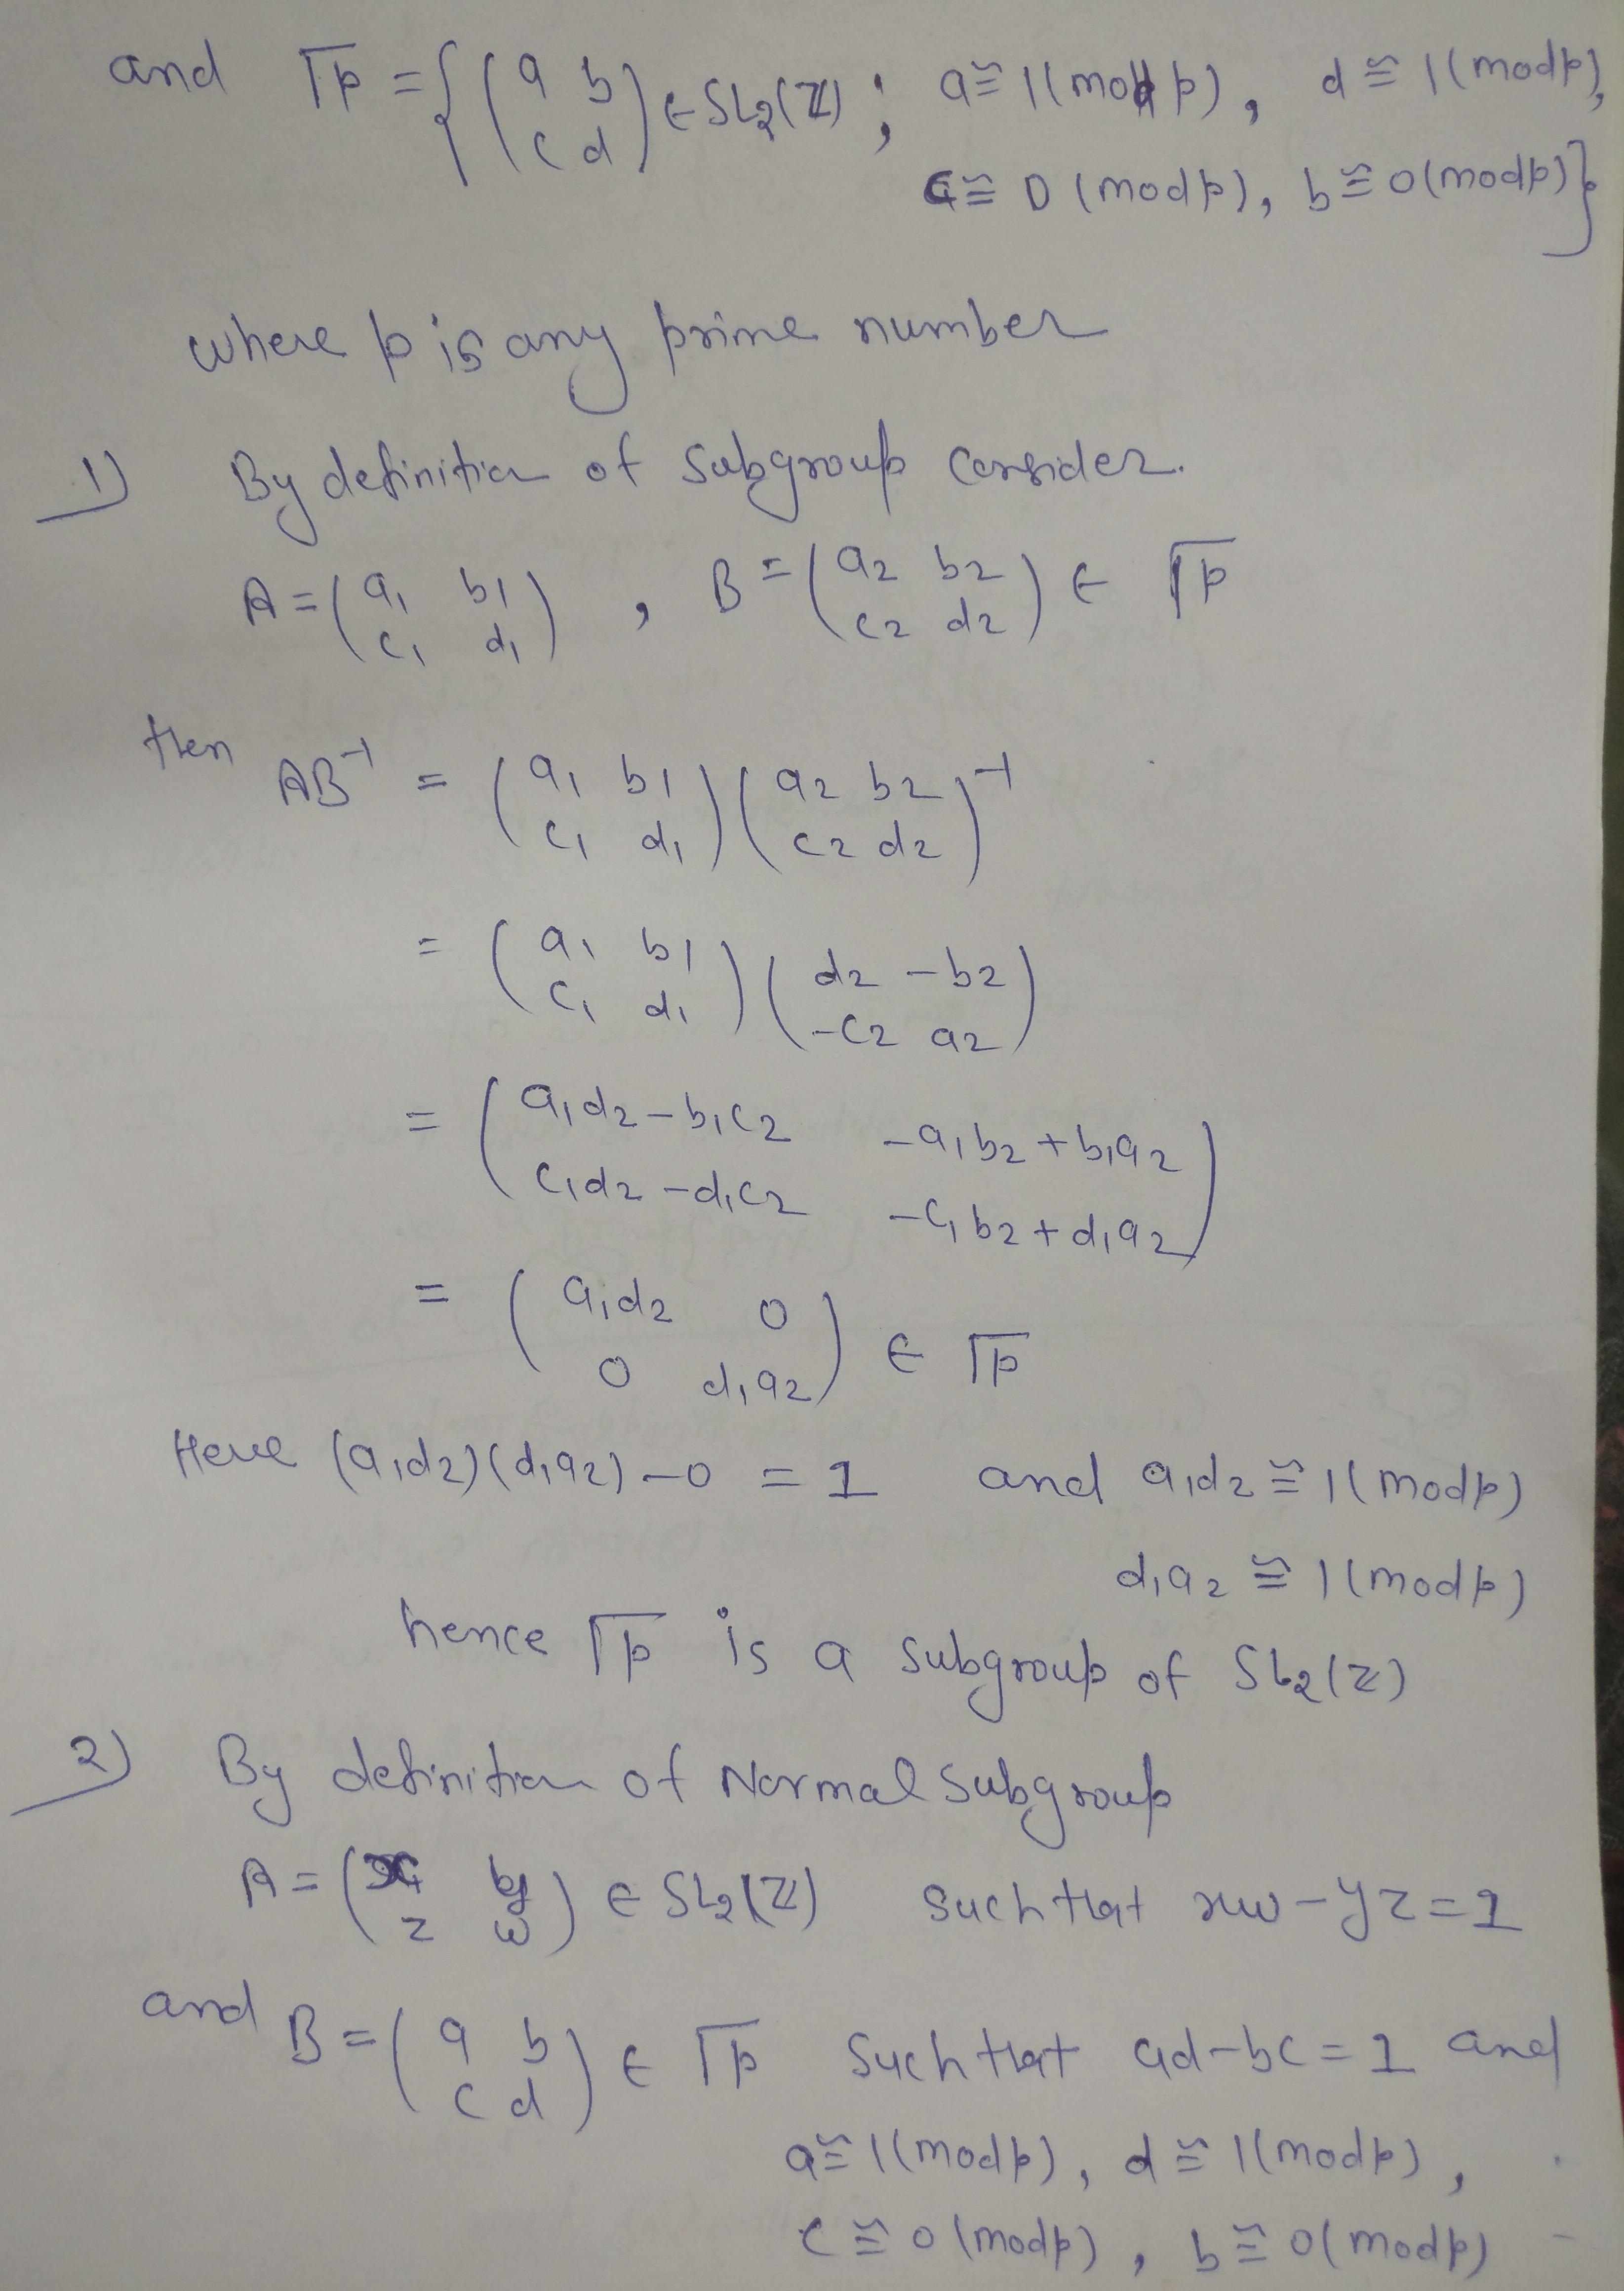 and Γp = { ( a b ) ∈ SL2(ℤ) ; a ≅ 1(mod p), d ≅ 1(mod p),
( c d ) c ≅ 0 (mod p), b ≅ 0(mod p) }
where p is any prime number
1) By definition of Subgroup Consider.
A = ( a1 b1 ) , B = ( a2 b2 ) ∈ Γp
( c1 d1 ) ( c2 d2 )
then AB^-1 = ( a1 b1 ) ( a2 b2 )^-1
( c1 d1 ) ( c2 d2 )
= ( a1 b1 ) ( d2 -b2 )
( c1 d1 ) ( -c2 a2 )
= ( a1d2-b1c2 -a1b2+b1a2 )
( c1d2-d1c2 -c1b2+d1a2 )
= ( a1d2 0 ) ∈ Γp
( 0 d1a2 )
Here (a1d2)(d1a2)-0 = 1 and a1d2 ≅ 1(mod p)
d1a2 ≅ 1(mod p)
hence Γp is a subgroup of SL2(Z)
2) By definition of Normal Subgroup
A = ( x y ) ∈ SL2(ℤ) Such that xw-yz=1
( z w )
and B = ( a b ) ∈ Γp Such that ad-bc=1 and
( c d )
a ≅ 1(mod p), d ≅ 1(mod p),
c ≅ 0(mod p), b ≅ 0(mod p)